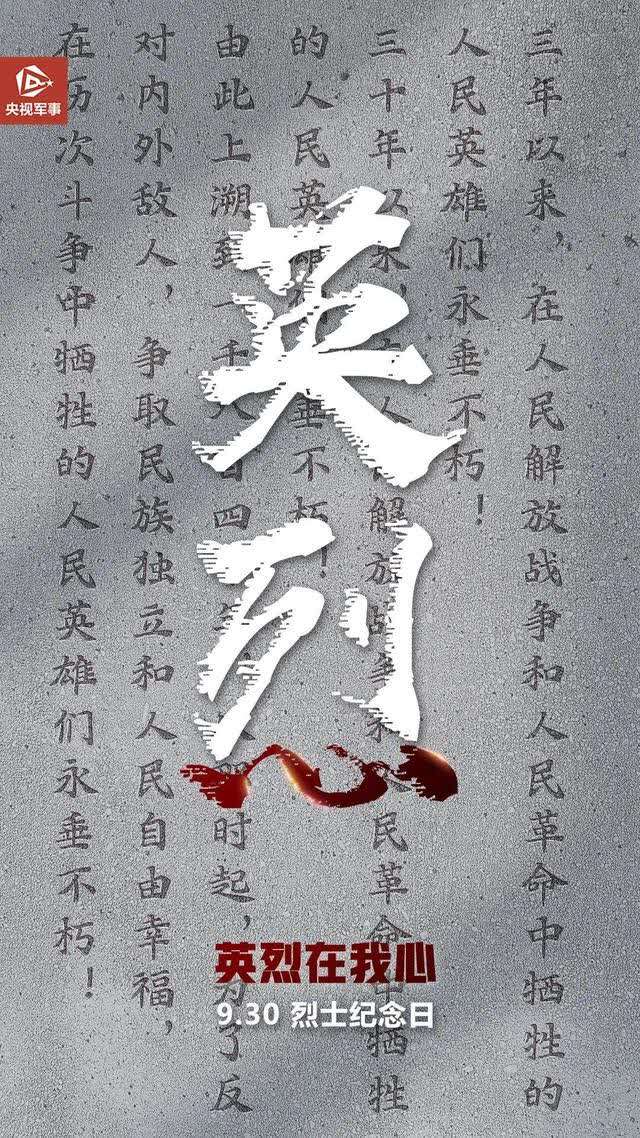 央视军事
三年以来，在人民解放战争和人民革命中牺牲的
人民英雄们永垂不朽！
三十年以来，在人民解放战争和人民革命中牺牲
的人民英雄们永垂不朽！
由此上溯到一千八百四年时起，为了反
对内外敌人，争取民族独立和人民自由幸福，
在历次斗争中牺牲的人民英雄们永垂不朽！
英烈
英烈在我心
9.30 烈士纪念日